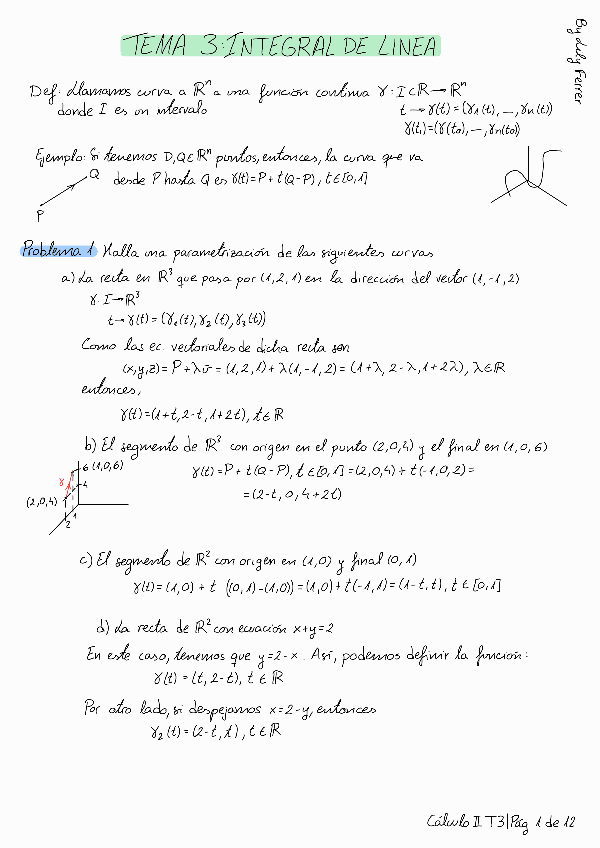 TEMA 3: INTEGRAL DE LINEA
By Luly Ferrer
Def: Llamamos curva a ℝⁿ a una función continua γ: I⊂ℝ → ℝⁿ
donde I es un intervalo t → γ(t) = (γ₁(t), ..., γn(t))
γ(t₀) = (γ(t₀), ..., γn(t₀))
Ejemplo: Si tenemos D,Q∈ℝⁿ puntos, entonces, la curva que va
desde P hasta Q es γ(t) = P + t(Q-P), t∈[0,1]
P
Q
Problema 1 Halla una parametrización de las siguientes curvas
a) La recta en ℝ³ que pasa por (1,2,1) en la dirección del vector (1,-1,2)
γ: I → ℝ³
t → γ(t) = (γ₁(t), γ₂(t), γ₃(t))
Como las ec. vectoriales de dicha recta son
(x,y,z) = P + λv = (1,2,1) + λ(1,-1,2) = (1+λ, 2-λ, 1+2λ), λ∈ℝ
entonces,
γ(t) = (1+t, 2-t, 1+2t), t∈ℝ
b) El segmento de ℝ³ con origen en el punto (2,0,4) y el final en (1,0,6)
γ(t) = P + t(Q-P), t∈[0,1] = (2,0,4) + t(-1,0,2) =
= (2-t, 0, 4+2t)
6 (1,0,6)
4
γ
(2,0,4)
1
2
c) El segmento de ℝ² con origen en (1,0) y final (0,1)
γ(t) = (1,0) + t ((0,1)-(1,0)) = (1,0) + t(-1,1) = (1-t, t), t∈[0,1]
d) La recta de ℝ² con ecuación x+y=2
En este caso, tenemos que y=2-x. Así, podemos definir la función:
γ(t) = (t, 2-t), t∈ℝ
Por otro lado, si despejamos x=2-y, entonces
γ₂(t) = (2-t, t), t∈ℝ
Cálculo II. T3|Pág 1 de 12